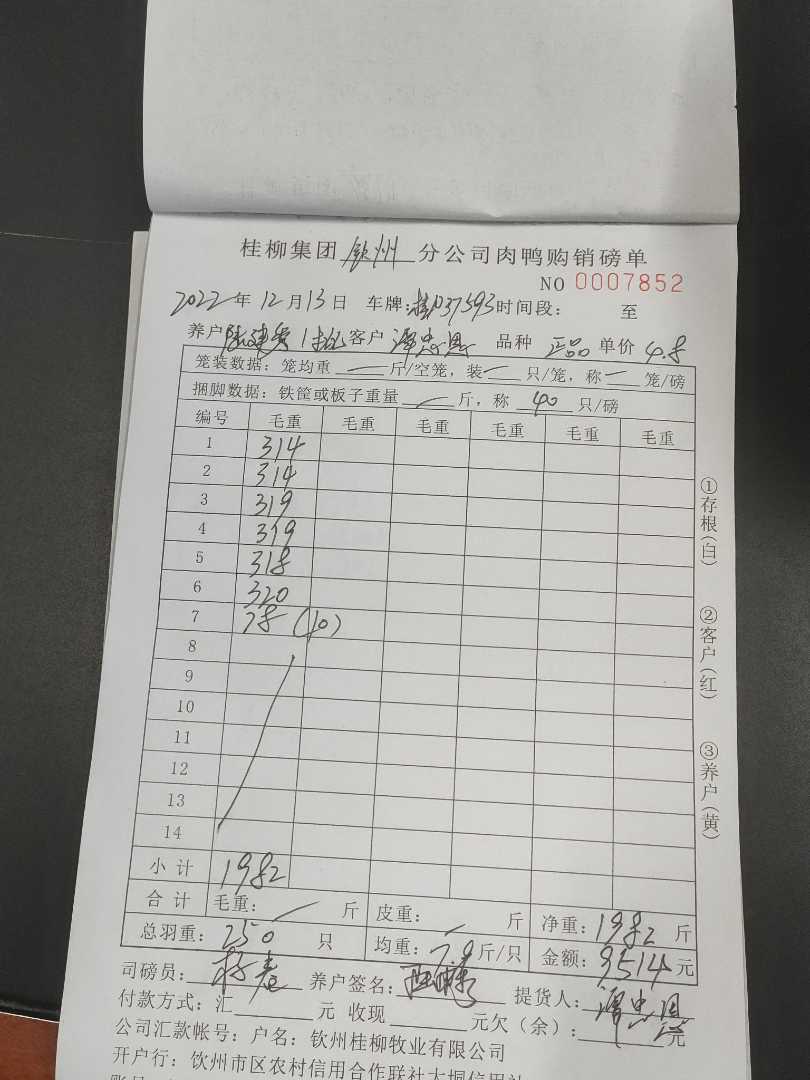 桂柳集团 钦州 分公司肉鸭购销磅单
NO 0007852
2022年12月13日 车牌:桂D37593 时间段: 至
养户 陈建 客户 谭忠恩 品种 正品 单价 4.8
笼装数据:笼均重 — 斤/空笼,装 — 只/笼,称 — 笼/磅
捆脚数据:铁筐或板子重量 — 斤,称 40 只/磅
编号 毛重 毛重 毛重 毛重 毛重 毛重
1 314
2 314
3 319
4 319
5 318
6 320
7 78(10)
8
9
10
11
12
13
14
小计 1982
合计 毛重: — 斤 皮重: — 斤 净重:1982 斤
总羽重:250 只 均重:7.9 斤/只 金额:9514 元
司磅员: 养户签名: 提货人:谭忠恩
付款方式:汇 元 收现 元欠(余): 元
公司汇款帐号:户名:钦州桂柳牧业有限公司
开户行:钦州市区农村信用合作联社大垌信用社
①存根(白) ②客户(红) ③养户(黄)